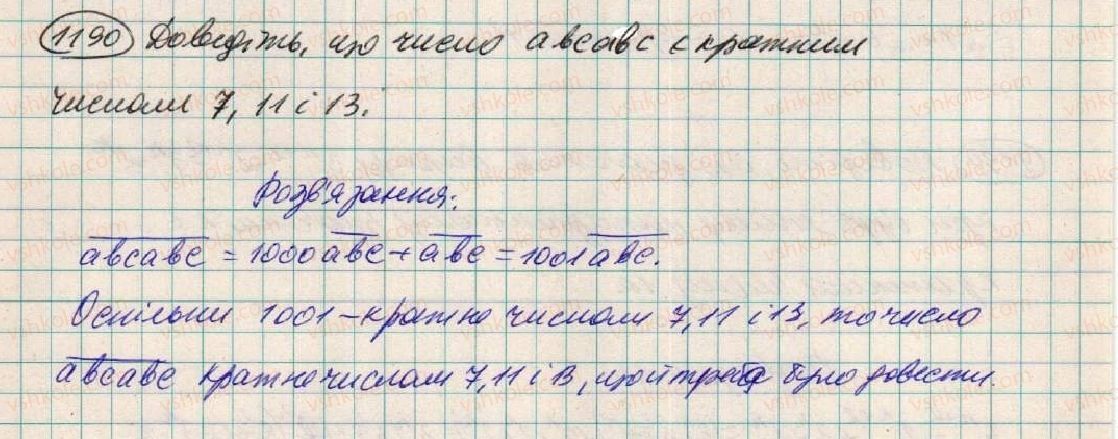 1190 Доведіть, що число abcabc є кратним
числам 7, 11 і 13.
Розв'язання:
abcabc = 1000abc + abc = 1001abc.
Оскільки 1001 – кратне числам 7, 11 і 13, то число
abcabc кратне числам 7, 11 і 13, що й треба було довести.